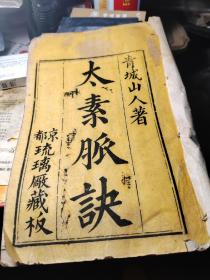 青城山人著
太素脈訣
京都琉璃厰藏板